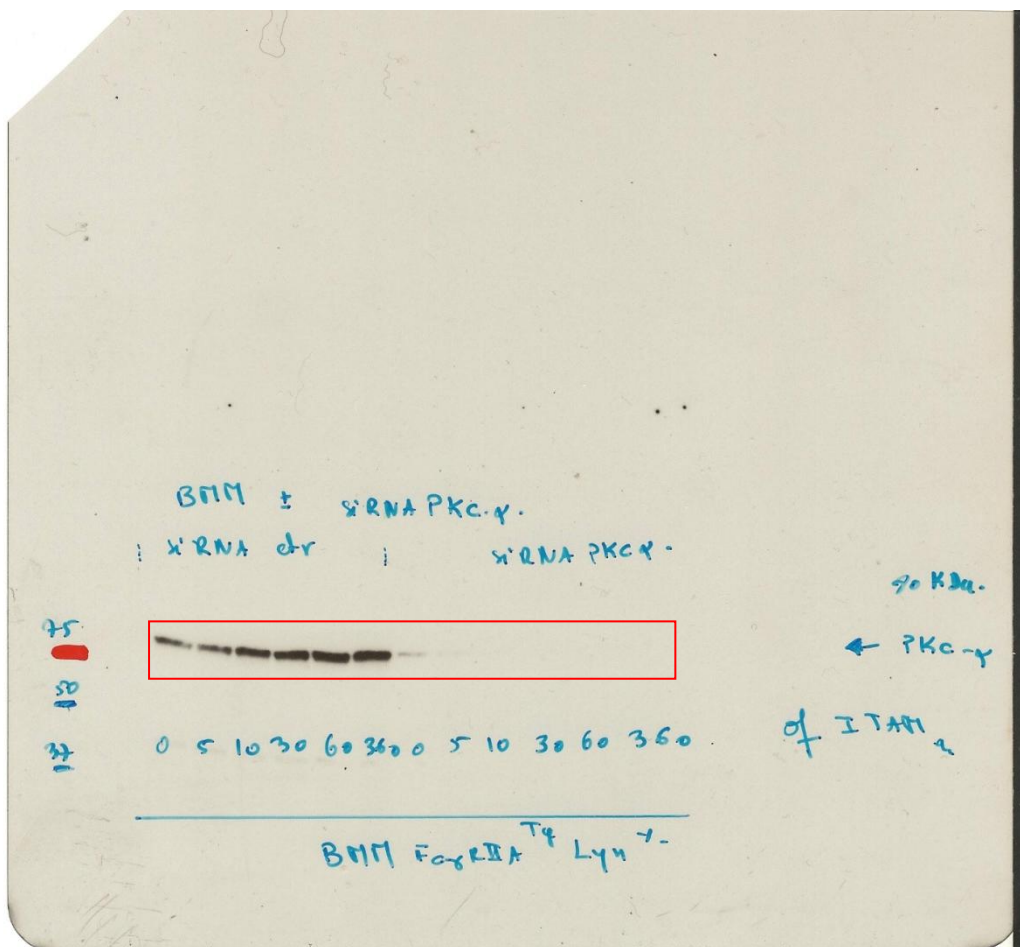 BMM ± siRNA PKC-γ.
siRNA ctr siRNA PKCγ.
90 KDa.
75
← PKC-γ
50
of ITAM
37
0 5 10 30 60 360 0 5 10 30 60 360
BMM FcγRIIA Tg Lyn -/-